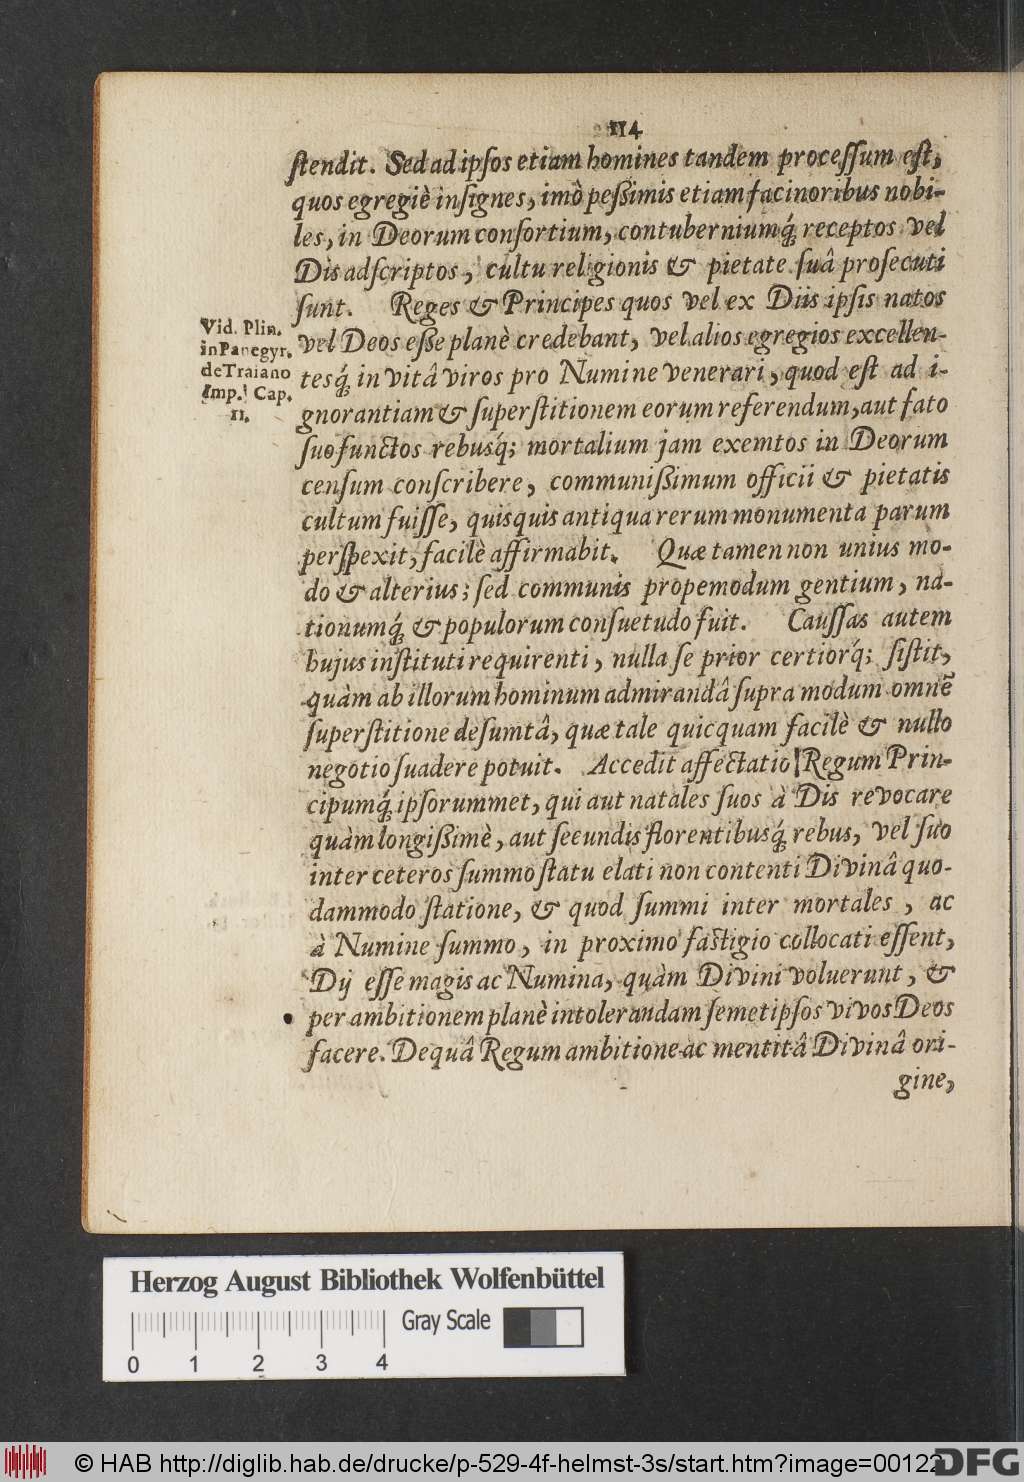 114
ſtendit. Sed ad ipſos etiam homines tandem proceſſum eſt,
quos egregiè inſignes, imò peßimis etiam facinoribus nobi-
les, in Deorum conſortium, contuberniumq́; receptos vel
Dis adſcriptos, cultu religionis & pietate ſuâ proſecuti
ſunt. Reges & Principes quos vel ex Diis ipſis natos
vel Deos eſſe planè credebant, vel alios egregios excellen-
tesq́; in vitâ viros pro Numine venerari, quod eſt ad i-
gnorantiam & ſuperſtitionem eorum referendum, aut fato
ſuo functos rebusq́; mortalium jam exemtos in Deorum
cenſum conſcribere, communißimum officii & pietatis
cultum fuiſſe, quisquis antiqua rerum monumenta parum
perſpexit, facilè affirmabit. Quæ tamen non unius mo-
do & alterius; ſed communis propemodum gentium, na-
tionumq́; & populorum conſuetudo fuit. Cauſſas autem
hujus inſtituti requirenti, nulla ſe prior certiorq́; ſiſtit,
quàm ab illorum hominum admirandâ ſupra modum omnẽ
ſuperſtitione deſumtâ, quæ tale quicquam facilè & nullo
negotio ſuadere potuit. Accedit affectatio Regum Prin-
cipumq́; ipſorummet, qui aut natales ſuos à Dis revocare
quàm longißimè, aut ſecundis florentibusq́; rebus, vel ſuo
inter ceteros ſummo ſtatu elati non contenti Divinâ quo-
dammodo ſtatione, & quod ſummi inter mortales, ac
à Numine ſummo, in proximo faſtigio collocati eſſent,
Dij eſſe magis ac Numina, quàm Divini voluerunt, &
per ambitionem planè intolerandam ſemetipſos vivos Deos
facere. De quâ Regum ambitione ac mentitâ Divinâ ori-
gine,
Vid. Plin.
in Panegyr.
de Traiano
Imp. Cap.
11.
Herzog August Bibliothek Wolfenbüttel
Gray Scale
0 1 2 3 4
© HAB http://diglib.hab.de/drucke/p-529-4f-helmst-3s/start.htm?image=00122
DFG